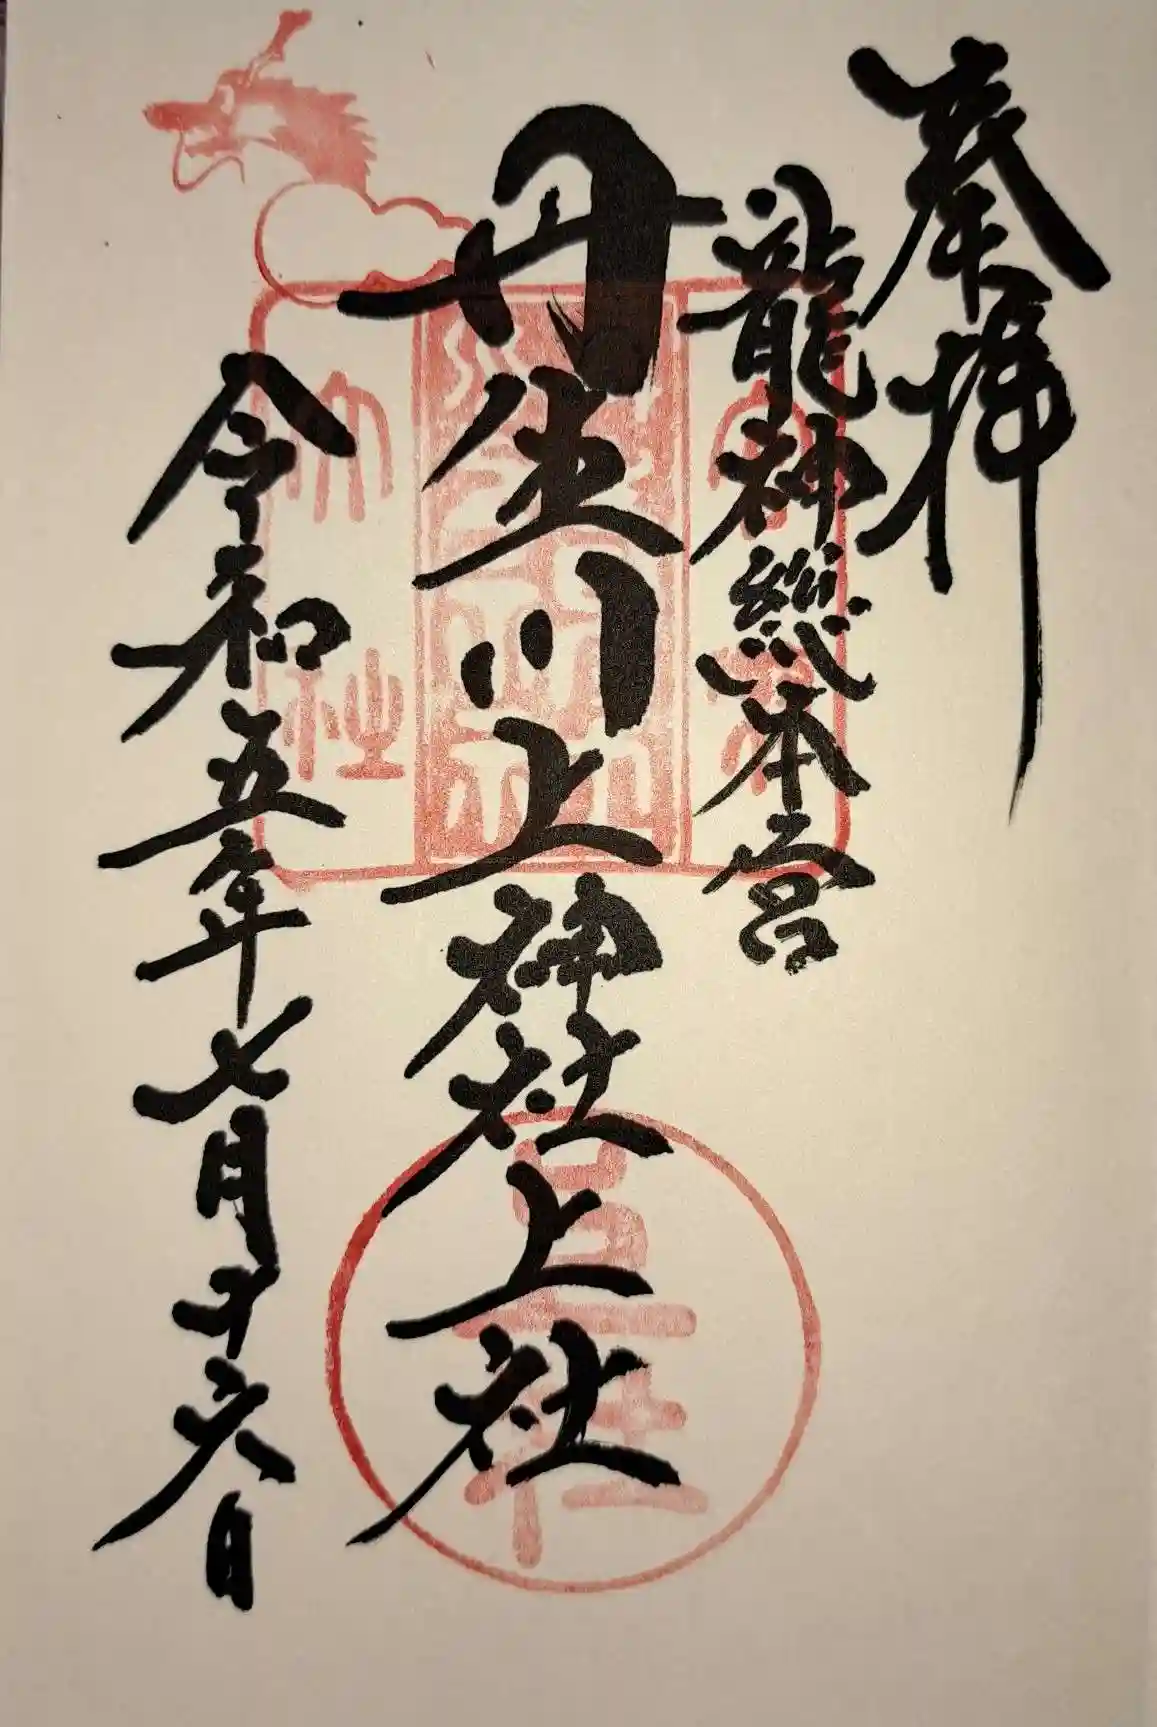 奉拝
龍神総本宮
丹生川上神社上社
令和五年七月十六日
上社